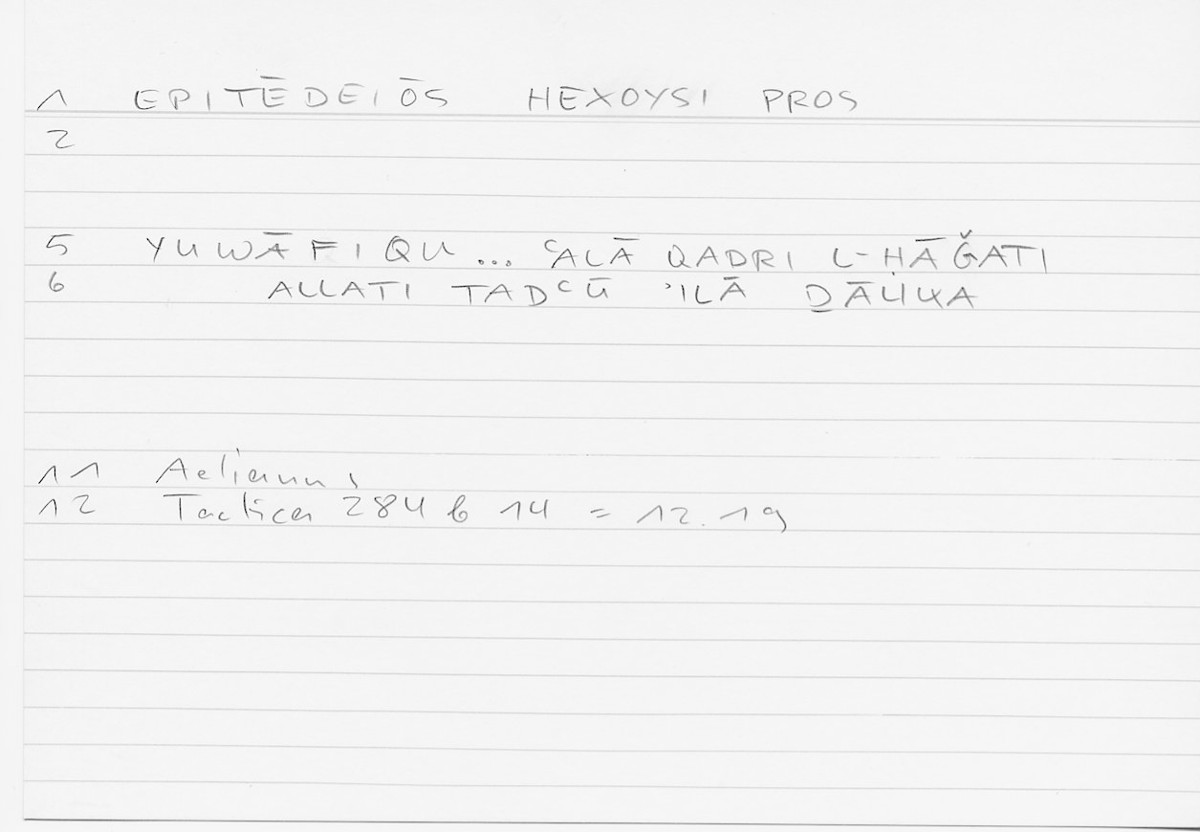 1 EPITĒDEIŌS HEXOYSI PROS
2
5 YUWĀFIQU... ʿALĀ QADRI L-ḤĀǦATI
6 ALLATI TADʿŪ ʾILĀ
11 Aelianus
12 Tactica 284 b 14 = 12.19